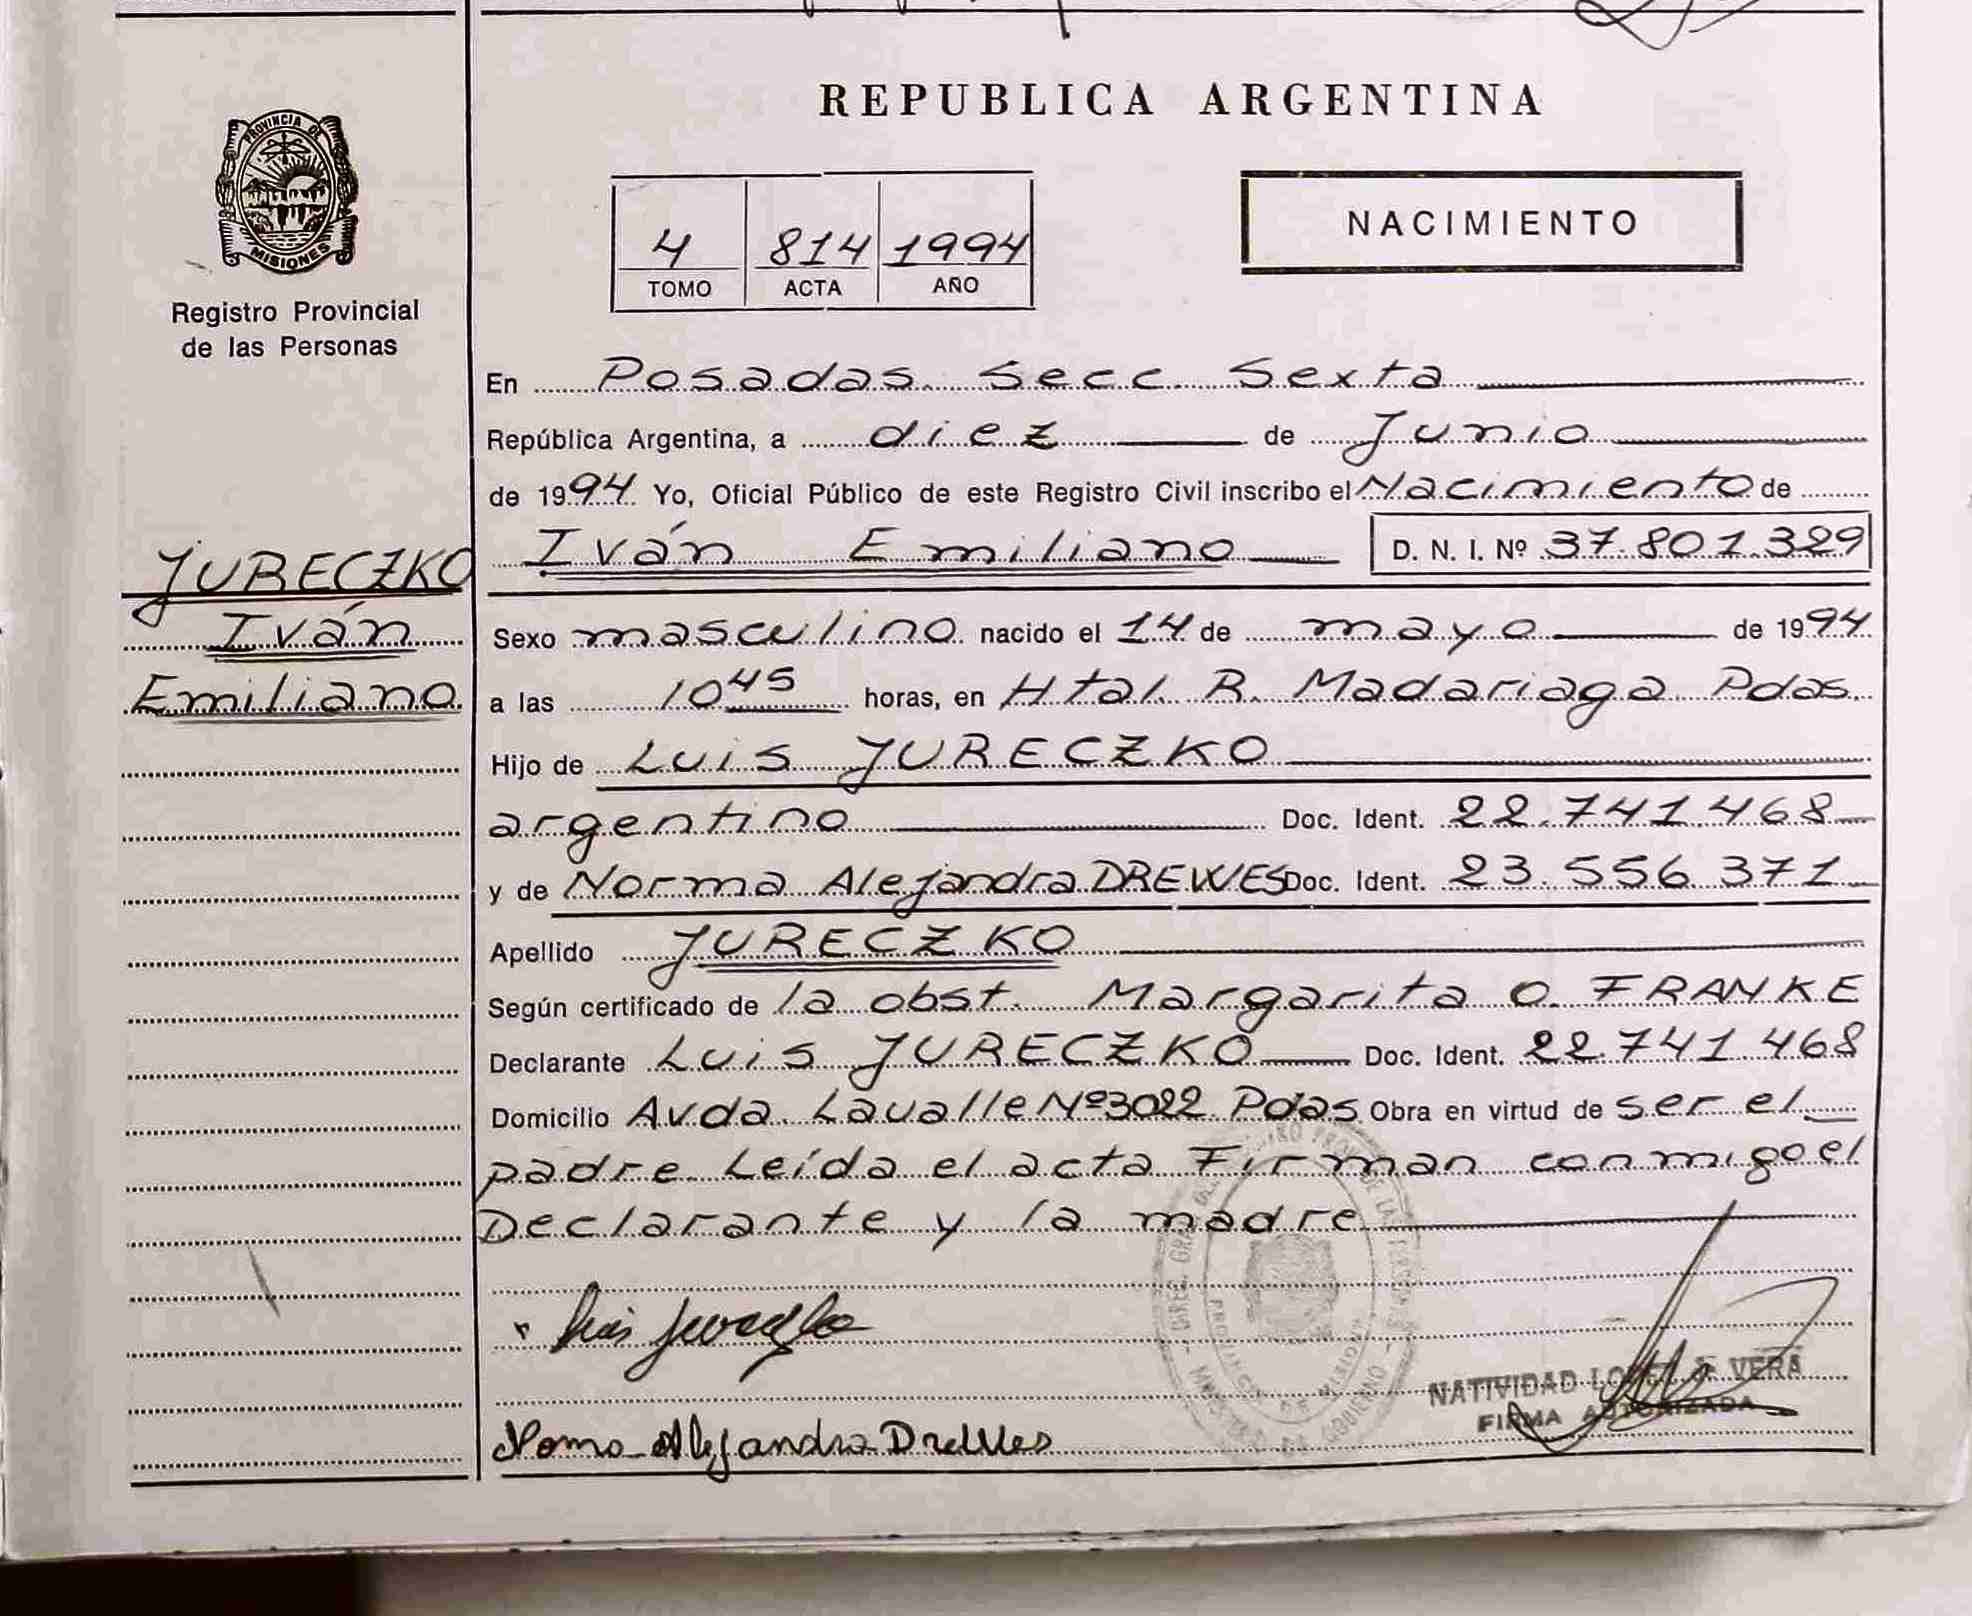 REPUBLICA ARGENTINA
PROVINCIA DE
MISIONES
Registro Provincial
de las Personas
4 814 1994
TOMO ACTA AÑO
NACIMIENTO
En Posadas Secc Sexta
República Argentina, a diez de Junio
de 1994 Yo, Oficial Público de este Registro Civil inscribo el Nacimiento de
Iván Emiliano D. N. I. Nº 37.801.329
JURECZKO
Iván
Emiliano
Sexo masculino nacido el 14 de mayo de 1994
a las 10 45 horas, en Htal. R. Madariaga Pdas.
Hijo de Luis JURECZKO
argentino Doc. Ident. 22.741.468
y de Norma Alejandra DREWES Doc. Ident. 23.556.371
Apellido JURECZKO
Según certificado de la obst. Margarita O. FRANKE
Declarante Luis JURECZKO Doc. Ident. 22.741.468
Domicilio Avda. Lavalle Nº 3022 Pdas. Obra en virtud de ser el
padre. Leída el acta Firman conmigo el
Declarante y la madre
Luis Jureczko
NATIVIDAD VERA
FIRMA AUTORIZADA
Norma Alejandra Drewes